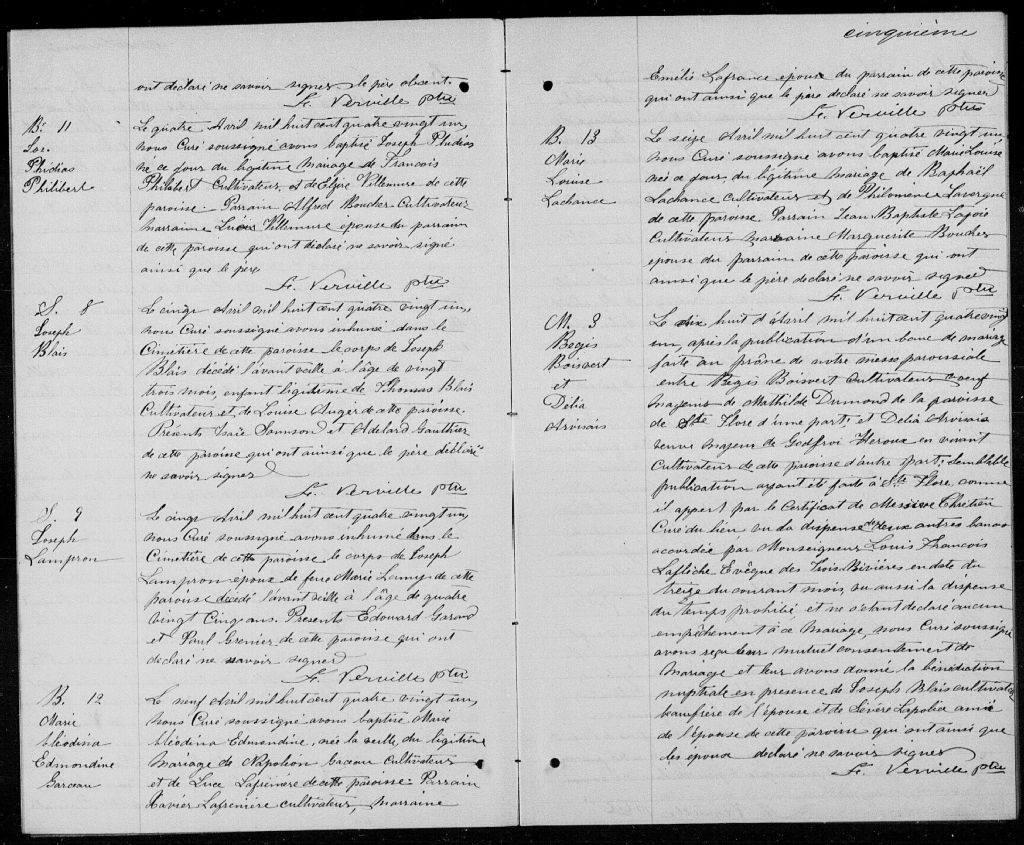 ont déclaré ne savoir signer le père absent.
Fr. Verville ptre
B. 11
Jos.
Phidias
Philibert
Le quatre Avril mil huit cent quatre vingt un,
nous Curé soussigné avons baptisé Joseph Phidias
né ce jour du légitime mariage de Francois
Philibert Cultivateur et de Elyse Villemure de cette
paroisse. Parrain Alfred Boucher Cultivateur
marraine Luce Villemure épouse du parrain
de cette paroisse qui ont déclaré ne savoir signé
ainsi que le père
Fr. Verville ptre
S. 8
Joseph
Blais
Le cinq Avril mil huit cent quatre vingt un,
nous Curé soussigné avons inhumé dans le
Cimetière de cette paroisse le corps de Joseph
Blais décédé l'avant veille à l'âge de vingt
trois mois, enfant légitime de Thomas Blais
Cultivateur et de Louise Auger de cette paroisse.
Présents Isaïe Samson et Adelard Gauthier
de cette paroisse qui ont ainsi que le père déclaré
ne savoir signer
Fr. Verville ptre
S. 9
Joseph
Lampron
Le cinq Avril mil huit cent quatre vingt un,
nous Curé soussigné avons inhumé dans le
Cimetière de cette paroisse le corps de Joseph
Lampron epoux de feue Marie Lamy de cette
paroisse décédé l'avant veille à l'âge de quatre
vingt cinq ans. Présents Edouard
et Paul Grenier de cette paroisse qui ont
déclaré ne savoir signer
Fr. Verville ptre
B. 12
Marie
Cléodina
Edmondine
Garceau
Le neuf Avril mil huit cent quatre vingt un,
nous Curé soussigné avons baptisé Marie
Cléodina Edmondine, née la veille du légitime
mariage de Napoléon Garceau Cultivateur
et de Luce Lafrenière de cette paroisse. Parrain
Xavier Lafrenière cultivateur, Marraine
cinquième
Emélie Lafrance épouse du parrain de cette paroisse
qui ont ainsi que le père déclaré ne savoir signer
Fr. Verville ptre
B. 13
Marie
Louise
Lachance
Le seize Avril mil huit cent quatre vingt un
nous Curé soussigné avons baptisé Marie Louise
née ce jour du légitime mariage de Raphaël
Lachance Cultivateur et de Philomène Lavergne
de cette paroisse Parrain Jean Baptiste Lajoie
Cultivateur marraine Marguerite Boucher
epouse du parrain de cette paroisse qui ont
ainsi que le père déclaré ne savoir signer
Fr. Verville ptre
M. 3
Regis
Boisvert
et
Délia
Arvisais
Le dix huit d'Avril mil huit cent quatre vingt
un, après la publication d'un banc de mariage
faite au prône de notre messe paroissiale
entre Regis Boisvert Cultivateur veuf
majeur de Mathilde Dumond de la paroisse
de Ste Flore d'une part; et Delia Arvisais
veuve majeur de Godfroi Heroux en vivant
Cultivateur de cette paroisse d'autre part; Semblable
publication ayant été faite à Ste Flore, comme
il appert par le Certificat de Messire Chrétien
Curé du lieu, vu la dispense des deux autres bancs
accordée par Monseigneur Louis Francois
Laflèche Evêque des Trois Rivières en date du
treize du courant mois, vu aussi la dispense
du temps prohibé, et ne s'étant déclaré aucun
empêchement à ce mariage, nous Curé soussigné
avons reçu leur mutuel consentement de
mariage et leur avons donné la bénédiction
nuptiale en presence de Joseph Blais cultivateur
beaufrère de l'épouse et de Sévère ami
de l'épouse de cette paroisse qui ont ainsi que
les époux déclaré ne savoir signer
Fr. Verville ptre